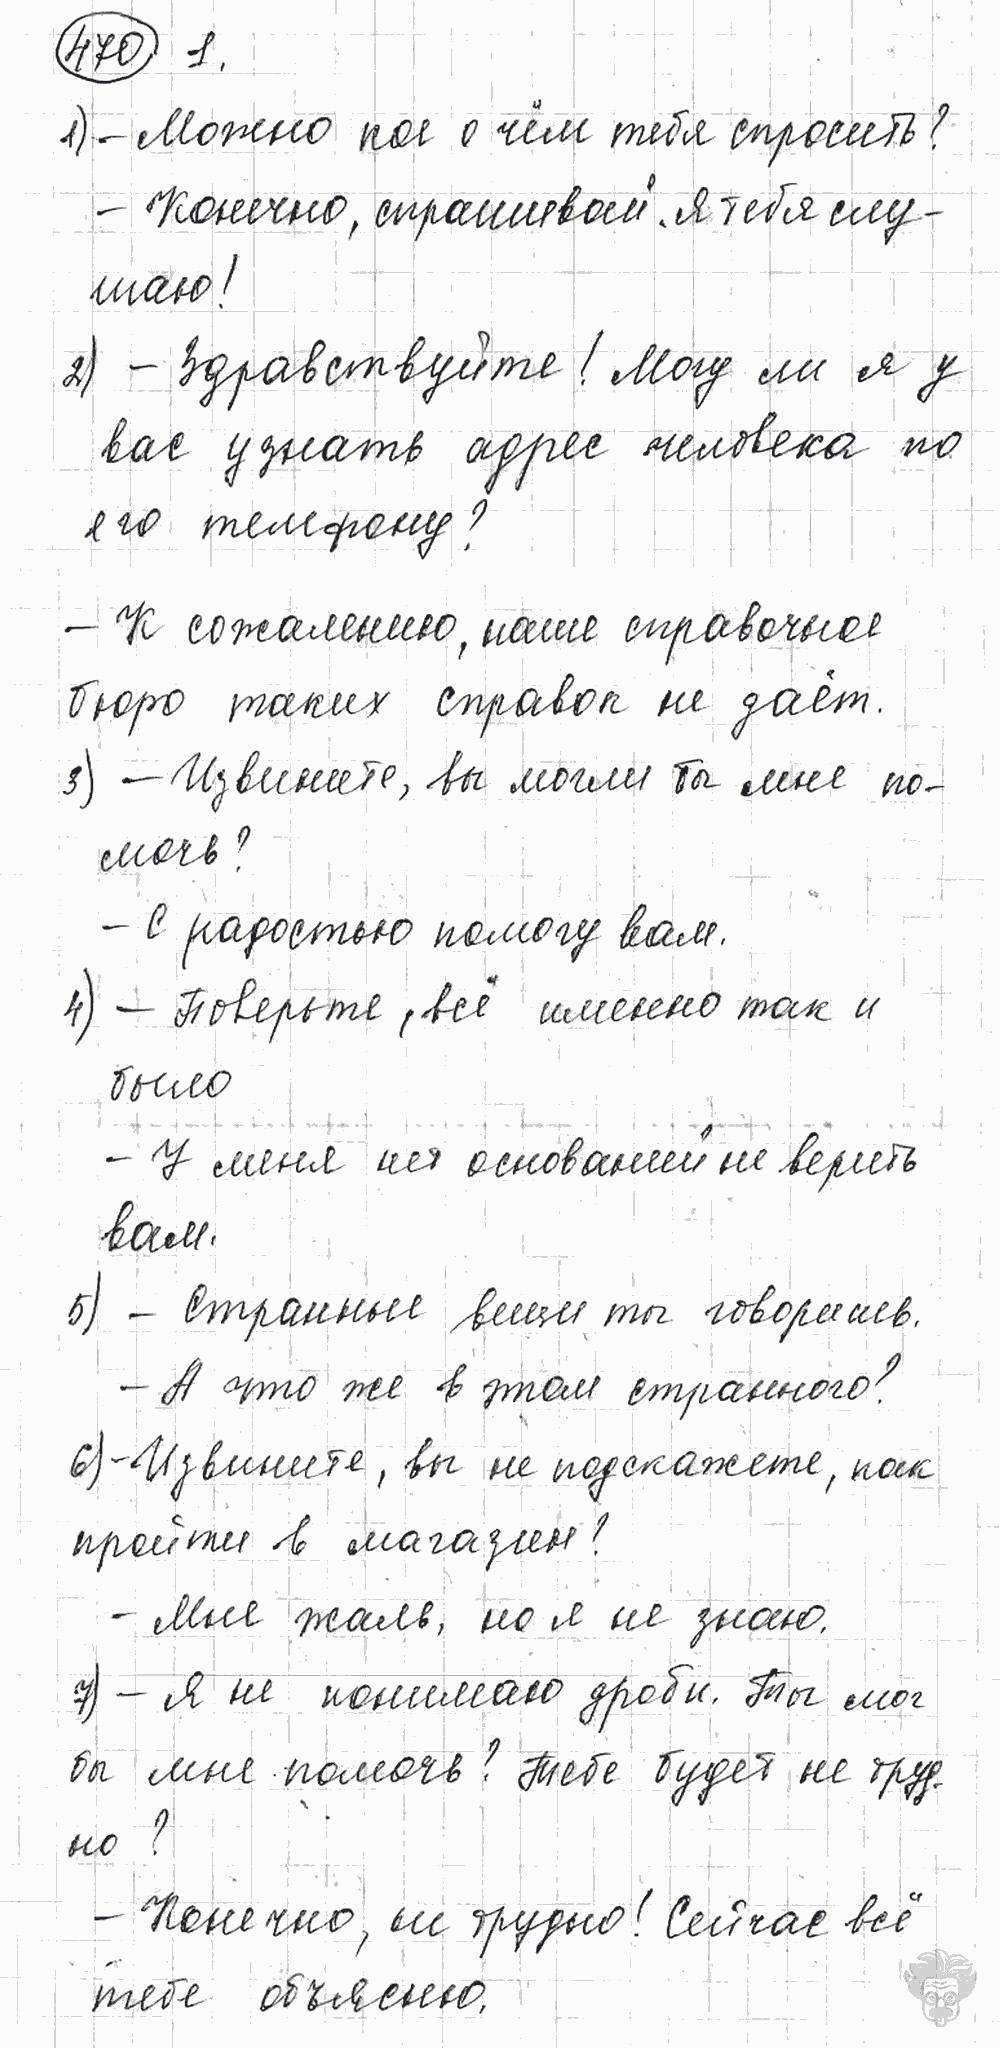 470 1.
1) – Можно кое о чём тебя спросить?
– Конечно, спрашивай. Я тебя слу-
шаю!
2) – Здравствуйте! Могу ли я у
вас узнать адрес человека по
его телефону?
– К сожалению, наше справочное
бюро таких справок не даёт.
3) – Извините, вы могли бы мне по-
мочь?
– С радостью помогу вам.
4) – Поверьте, всё именно так и
было
– У меня нет оснований не верить
вам.
5) – Странные вещи ты говоришь.
– А что же в этом странного?
6) – Извините, вы не подскажете, как
пройти в магазин?
– Мне жаль, но я не знаю.
7) – Я не понимаю дроби. Ты мог
бы мне помочь? Тебе будет не труд-
но?
– Конечно, не трудно! Сейчас всё
тебе объясню.